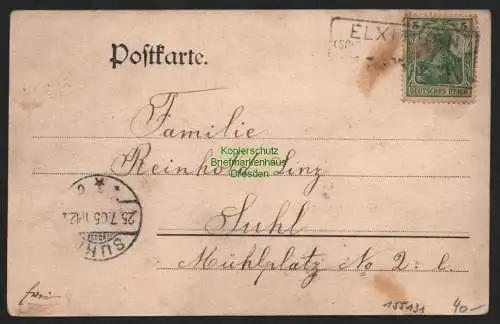 ELX
Postkarte.
5 5
DEUTSCHES REICH
Familie
Kopierschutz
Briefmarkenhaus
Dresden
Reinhold Linz
Suhl
25.7.05
SUHL
Mühlplatz No 2. l.
frei
155131
40-